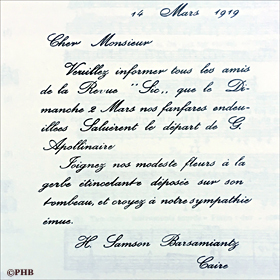 14 Mars 1919
Cher Monsieur
Veuillez informer tous les amis
de la Revue "Sic,, que le Di-
manche 2 Mars nos fanfares endeu-
illees Saluèrent le départ de G.
Apollinaire
Joignez nos modeste fleurs à la
gerbe étincelante déposée sur son
tombeau, et croyez à notre sympathie
émue.
H. Samson Barsamiantz
Caire
©PHB